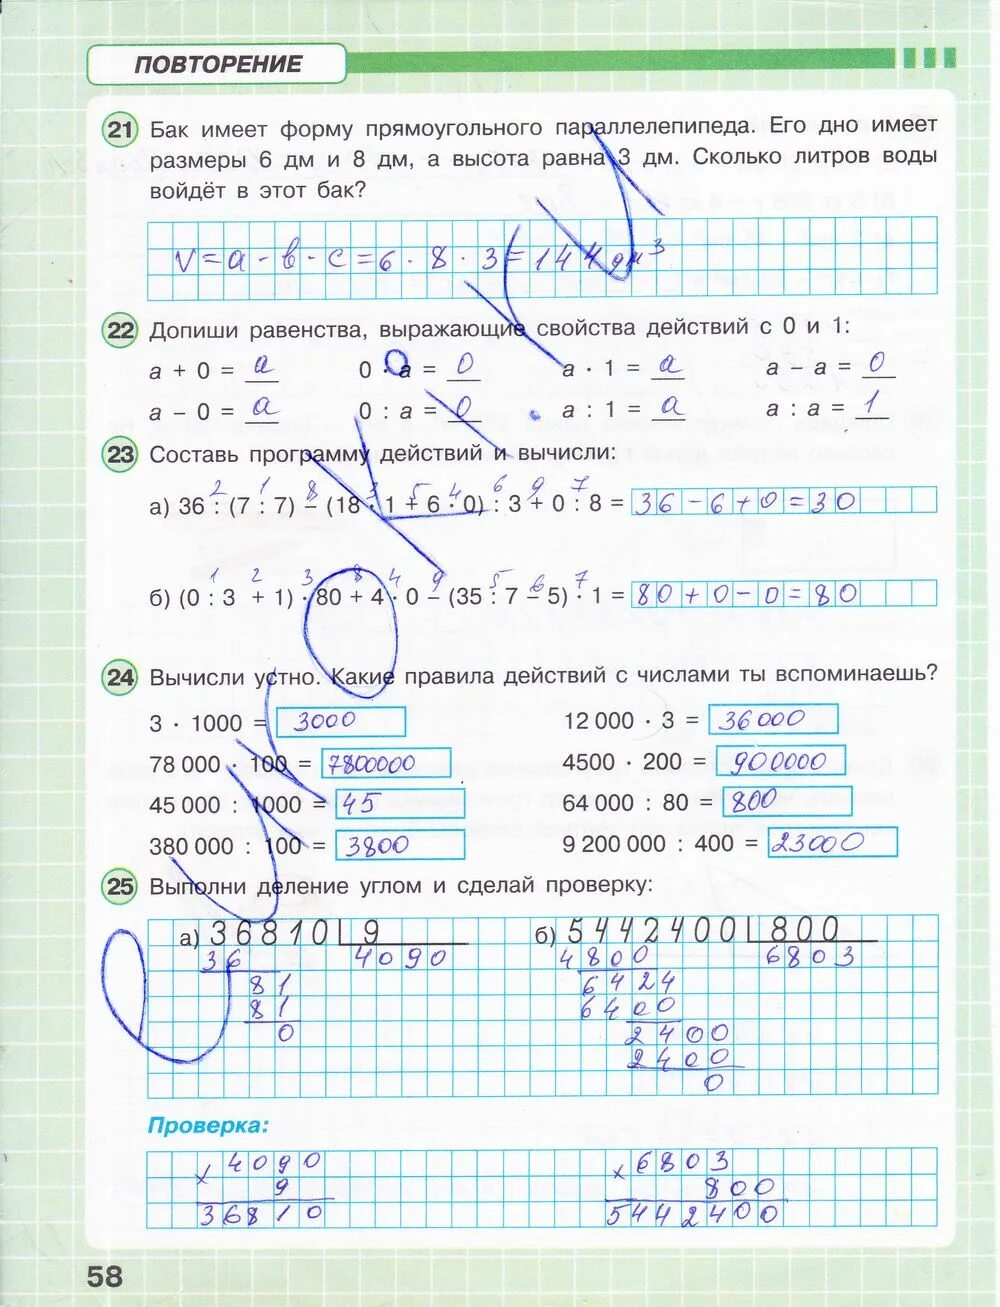 ПОВТОРЕНИЕ
21 Бак имеет форму прямоугольного параллелепипеда. Его дно имеет
размеры 6 дм и 8 дм, а высота равна 3 дм. Сколько литров воды
войдёт в этот бак?
V = a - b - c = 6 · 8 · 3 = 144 дм³
22 Допиши равенства, выражающие свойства действий с 0 и 1:
a + 0 = a 0 · a = 0 a · 1 = a a – a = 0
a – 0 = a 0 : a = 0 a : 1 = a a : a = 1
23 Составь программу действий и вычисли:
2 1 8 3 5 4 6 9 7
а) 36 : (7 : 7) – (18 · 1 + 6 · 0) : 3 + 0 : 8 = 36 - 6 + 0 = 30
1 2 3 8 4 9 5 6 7
б) (0 : 3 + 1) · 80 + 4 · 0 – (35 : 7 – 5) · 1 = 80 + 0 - 0 = 80
24 Вычисли устно. Какие правила действий с числами ты вспоминаешь?
3 · 1000 = 3000 12 000 · 3 = 36000
78 000 · 100 = 7800000 4500 · 200 = 900000
45 000 : 1000 = 45 64 000 : 80 = 800
380 000 : 100 = 3800 9 200 000 : 400 = 23000
25 Выполни деление углом и сделай проверку:
а) 36810 9 б) 5442400 800
36 4090 4800 6803
81 6424
81 6400
0 2400
2400
0
Проверка:
4090 6803
× 9 × 800
36810 5442400
58